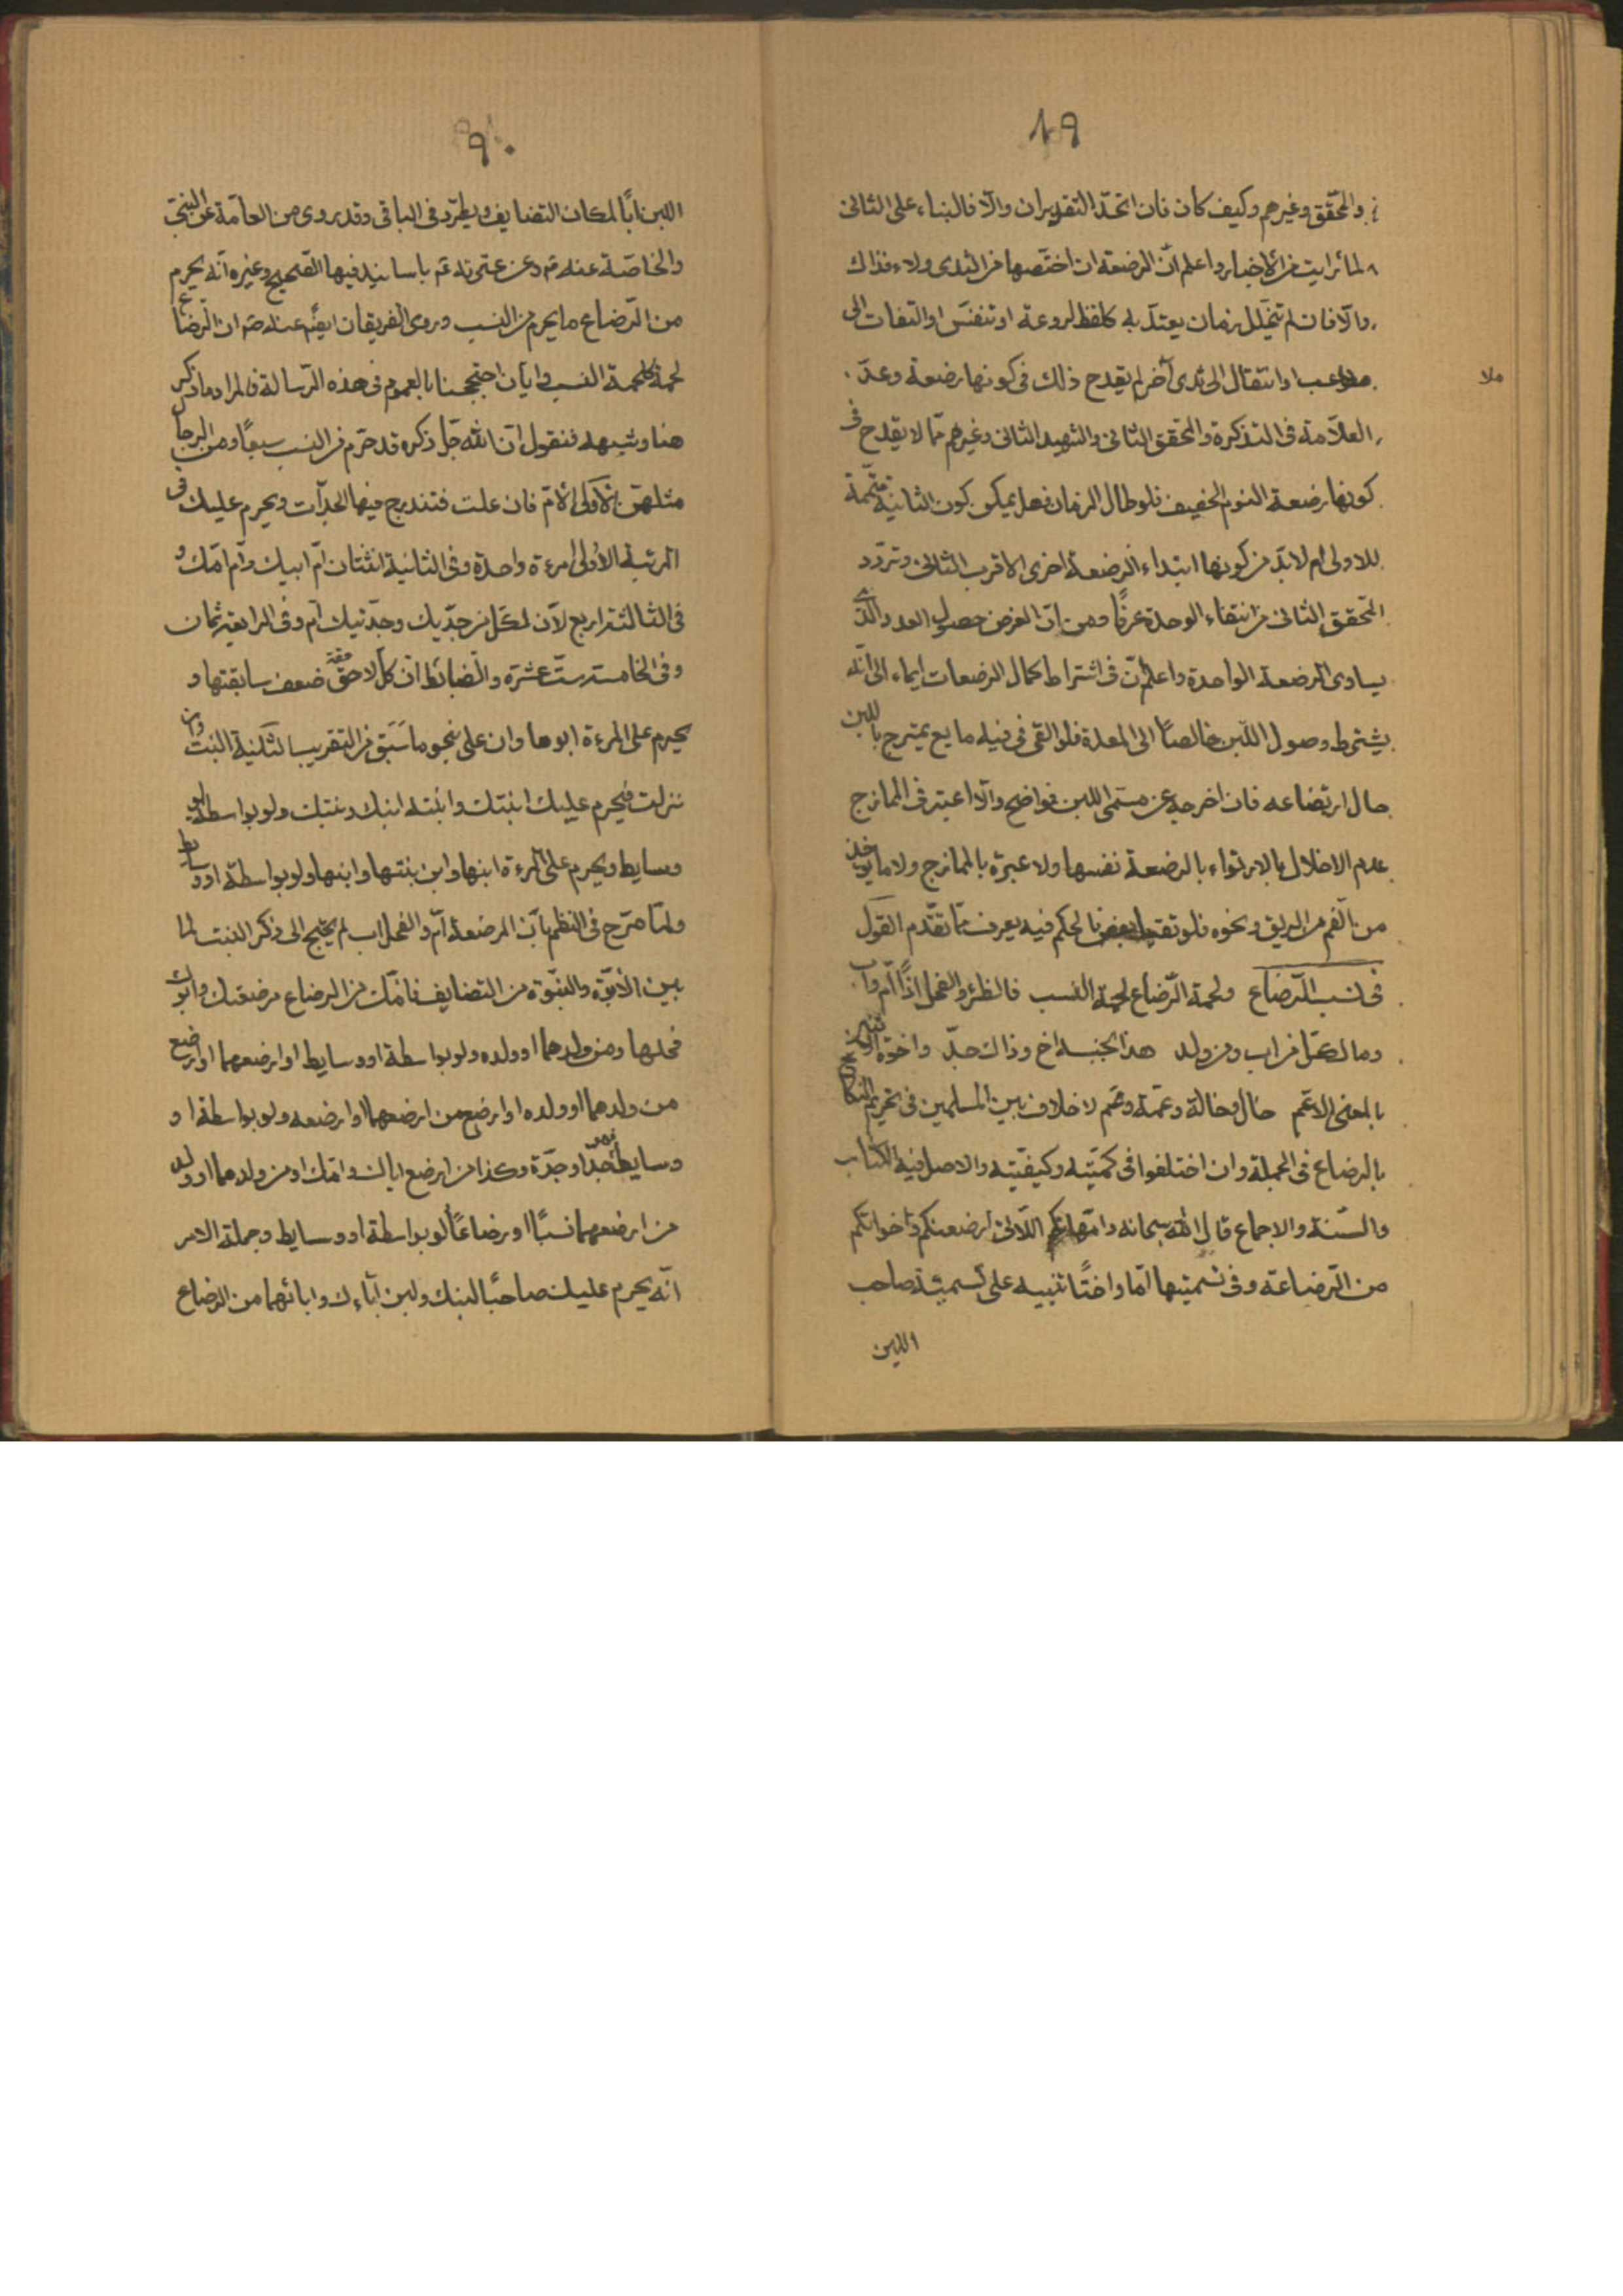 ١٩
والمحقق وغيرهم وكيف كان فان اتحد التقديران والا فالبناء على الثانى
لما رايت من الاخبار واعلم ان الرضعة ان اختصها من الثدى ولاء فذاك
والا فان لم يتخلل زمان يعتد به كلفظ لروعة او تنفس او التفات الى
ملاعب او انتقال الى ثدى آخر لم يقدح ذلك فى كونها رضعة وعد
ملا
العلامة فى التذكرة والمحقق الثانى والشهيد الثانى وغيرهم مما لا يقدح فى
كونها رضعة النوم الخفيف فلو طال الزمان فهل يمكن كون الثانية متممة
للاولى ام لابد من كونها ابتداء الرضعة اخرى الاقرب الثانى وتردد
المحقق الثانى من انتفاء الوحدة عرفًا ومن ان الغرض حصول العدد والذى
يساوى الرضعة الواحدة واعلم ان فى اشتراط كمال الرضعات ايماء الى انه
يشترط وصول اللبن خالصًا الى المعدة فلو القى فى فيه مايع يمتزج باللبن
حال ارتضاعه فان اخرجه عن مسمى اللبن فواضح والا اعتبر فى الممازج
عدم الاخلال بالارتواء بالرضعة نفسها ولا عبرة بالممازج ولا ما يوخذ
من الفم من الريق ونحوه فلو تقيا بعض فالحكم فيه يعرف مما تقدم القول
فى نسب الرضاع ولحمة الرضاع لحمة النسب فالظئر والفحل اذًا ام واب
وما لكل من اب ومن ولد هذا لجنبه اخ وذاك جد واخوة
بالمعنى الاعم خال وخالة وعمة وعم لا خلاف بين المسلمين فى تحريم النكاح
بالرضاع فى الجملة وان اختلفوا فى كميته وكيفيته والاصل فيه الكتاب
والسنة والاجماع قال الله سبحانه وامهاتكم اللاتى ارضعنكم واخواتكم
من الرضاعة وفى تسميتها امًا واختًا تنبيه على تسمية صاحب
اللبن
٩٠
اللبن ابًا لمكان التضايف ويطرد فى الباقى وقد روى من العامة عن النبى
والخاصة عنه ص وعن عترته ع باسانيد فيها الصحيح وغيره انه يحرم
من الرضاع ما يحرم من النسب وروى الفريقان ايضًا عنه ص ان الرضاع
لحمة كلحمة النسب وايان احتججنا بالعموم فى هذه الرسالة فالمراد ما ذكر
هنا وشبهه فنقول ان الله جل ذكره قد حرم من النسب سبعًا ومن الرجال
مثلهن الاولى الام فان علت فتندرج فيها الجدات ويحرم عليك فى
المرتبة الاولى امرءة واحدة وفى الثانية اثنتان ام ابيك وام امك و
فى الثالثة اربع لان لكل من جديك وجدتيك ام وفى الرابعة ثمان
وفى الخامسة ست عشرة والضابط ان كل لاحقة ضعف سابقتها و
يحرم على المرءة ابوها وان على نحو ما سبق من التقريب الثانية البنت وان
نزلت فيحرم عليك ابنتك وابنته ابنك وبنتك ولو بواسطة او
وسايط ويحرم على المرءة ابنها وابن بنتها وابنها ولو بواسطة او وسايط
ولما صرح فى النظم بان المرضعة ام والفحل اب لم يحتج الى ذكر البنت لما
بين الابوة والبنوة من التضايف فامك من الرضاع مرضعتك وابوك
فحلها ومن ولدهما او ولده ولو بواسطة او وسايط او ارضعهما او ارضع
من ولدهما او ولده او ارضع من ارضعهما او ارضعه ولو بواسطة او
وسايط فهو جد او جدة وكذا من ارضع اباك وامك او من ولدهما او ولد
من ارضعهما نسبًا او رضاعًا لو بواسطة او وسايط وجملة الامر
انه يحرم عليك صاحبًا لبنك ولبن آباءك وابائهما من الرضاع